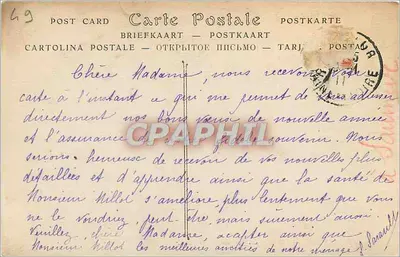 49
POST CARD Carte Postale POSTKARTE
BRIEFKAART — POSTKAART
CARTOLINA POSTALE — ОТКРЫТОЕ ПИСЬМО — TARJ. POSTAL
Chère Madame, nous recevons votre
carte à l'instant ce qui me permet de vous adresser
directement nos bons vœux de nouvelle année
et l'assurance de souvenir. Nous
serions heureuse de recevoir de vos nouvelles plus
détaillées et d'apprendre ainsi que la santé de
Monsieur Millot s'améliore plus lentement que vous
ne le voudriez, peut être, mais surement aussi.
Veuillez, chère Madame, accepter ainsi que
Monsieur Millot les meilleures amitiés de notre ménage
CPAPHIL